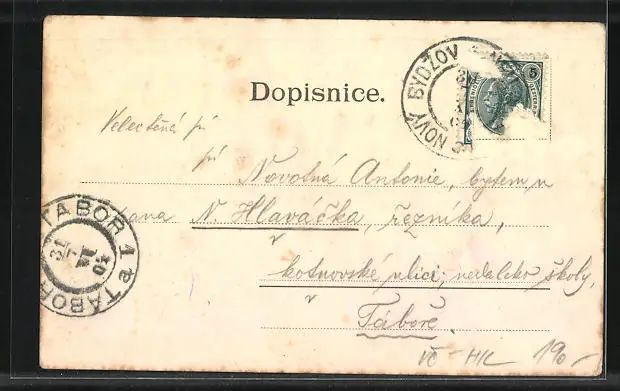 Dopisnice.
NOVÝ BYDŽOV
5
Velectěná pí
pí Novotná Antonie, bytem u
pana N. Hlaváčka, řezníka,
v kotnovské ulici, nedaleko školy,
v Táboře.
TÁBOR 1 TABOR
190-